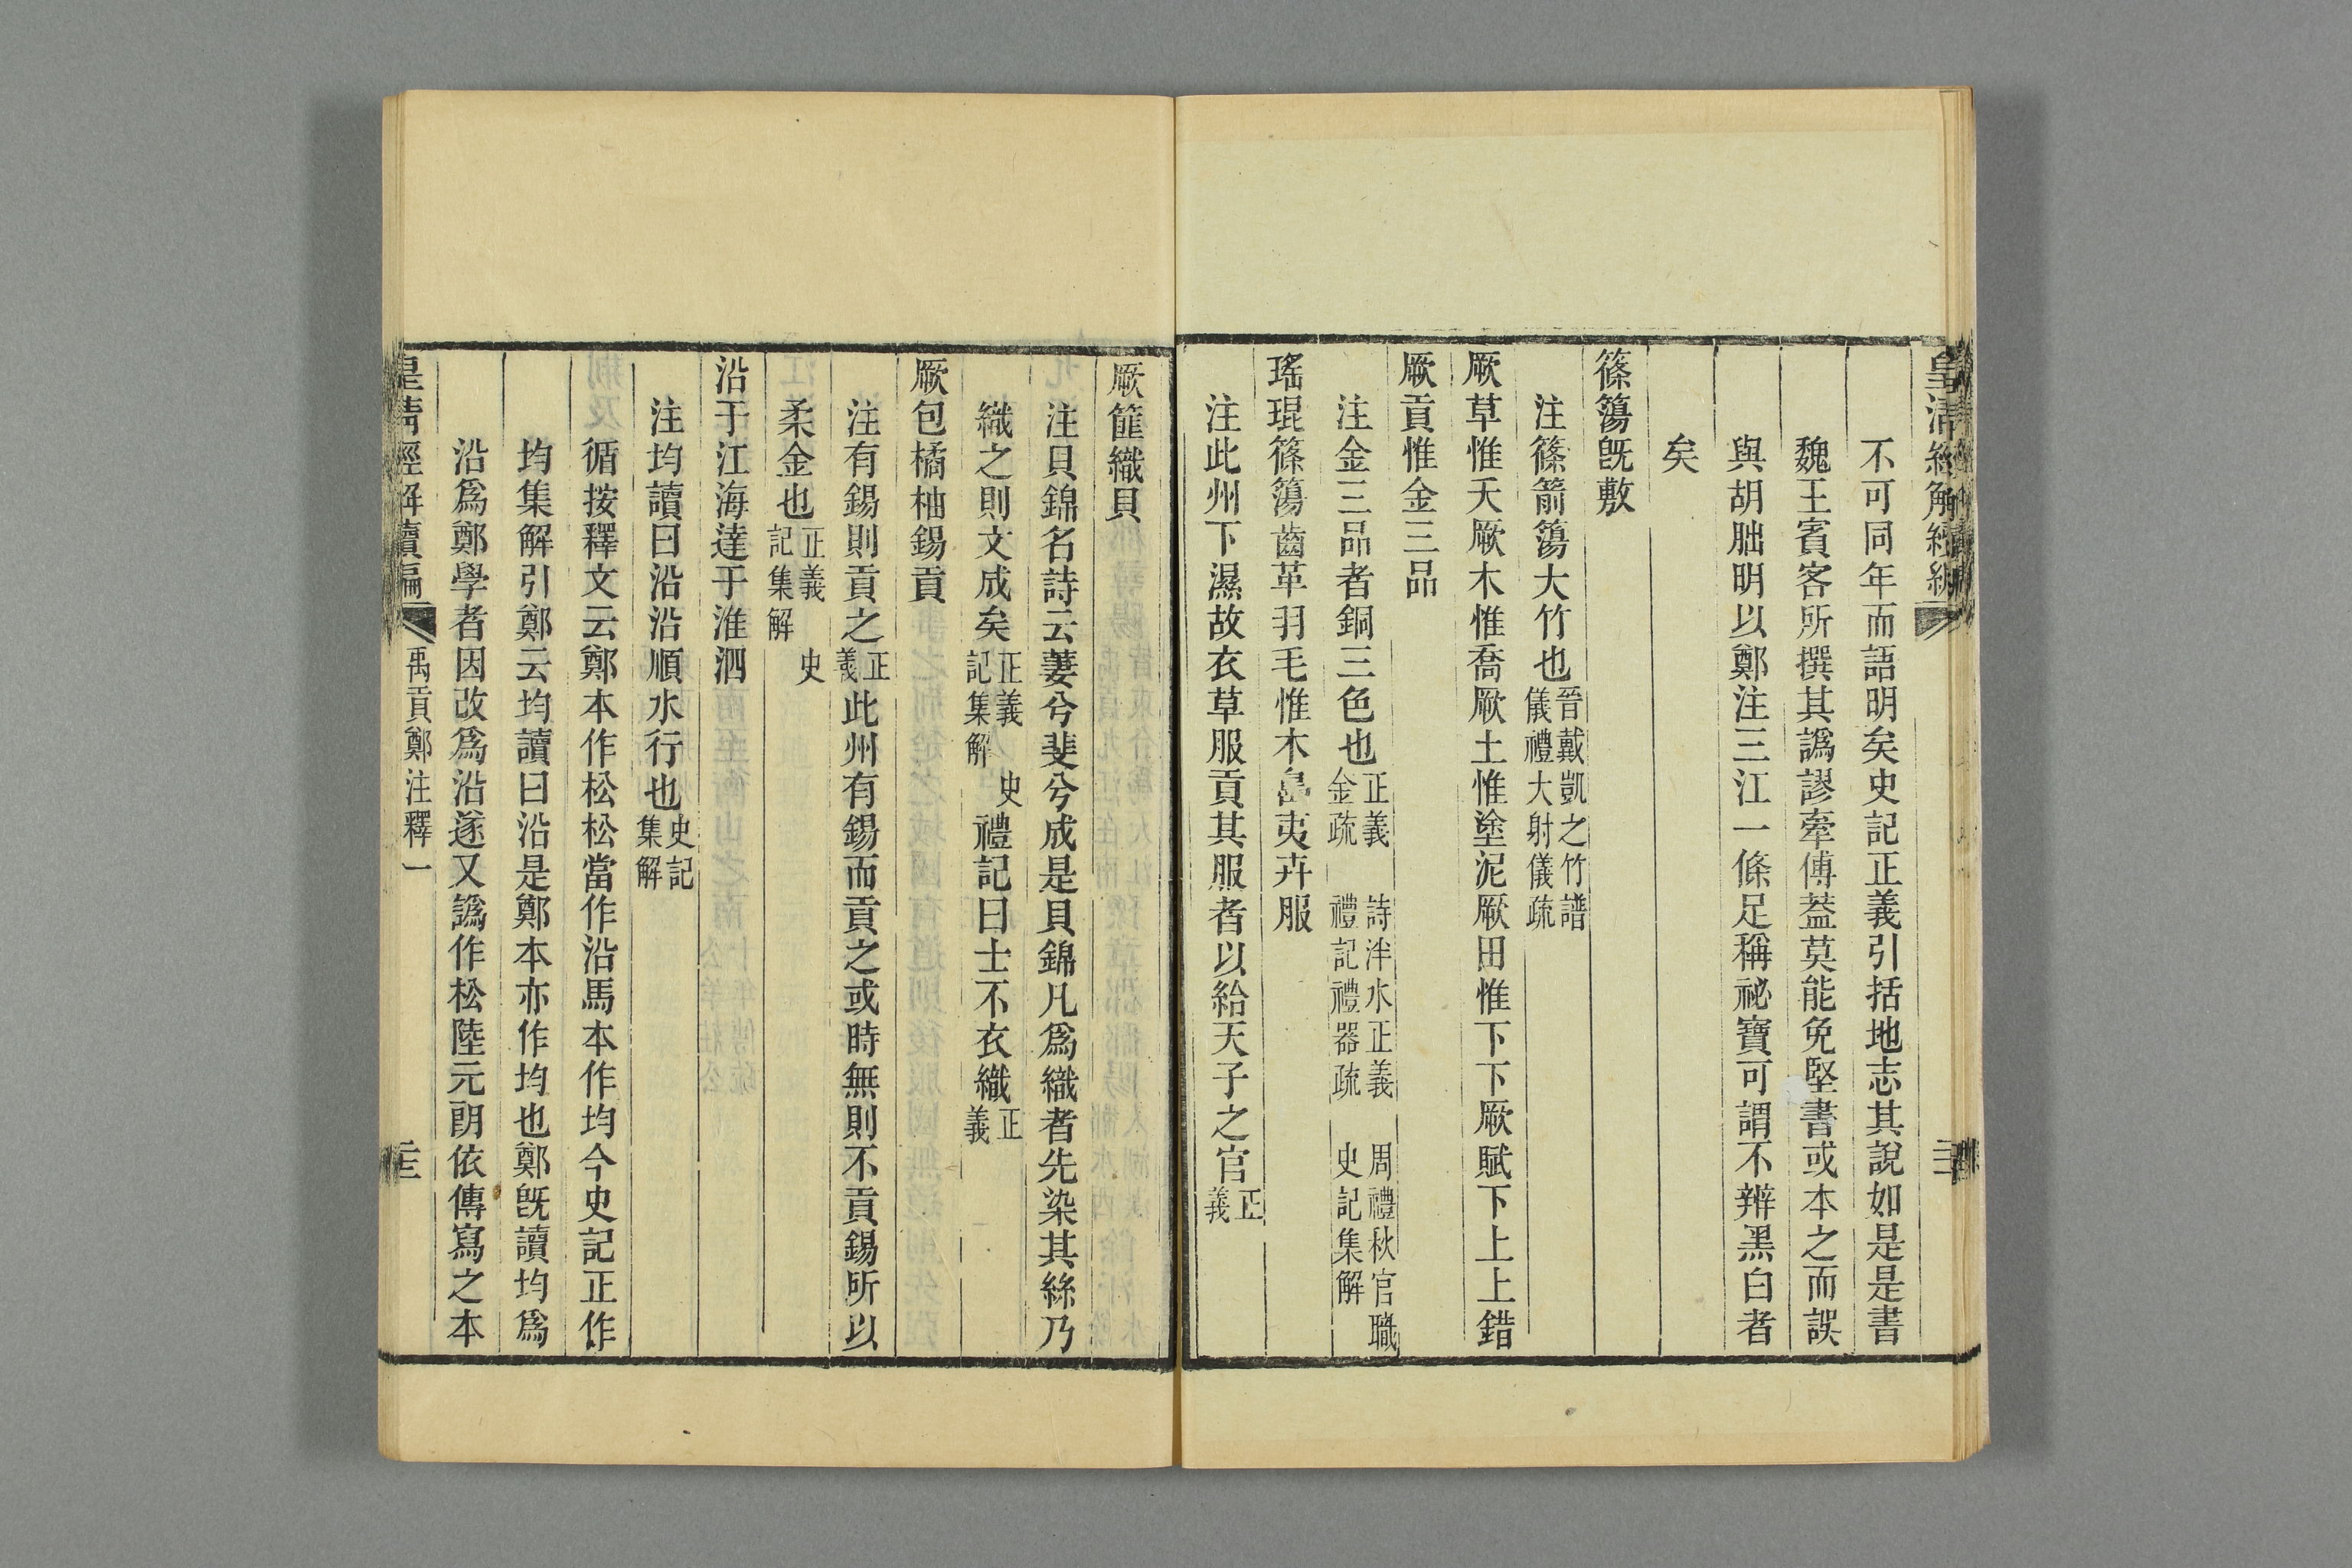 不可同年而語明矣史記正義引括地志其說如是是書
魏王賓客所撰其譌謬牽傅葢莫能免堅書或本之而誤
與胡朏明以鄭注三江一條足稱祕寶可謂不辨黑白者
矣
篠簜旣敷
注篠箭簜大竹也晉戴凱之竹譜儀禮大射儀疏
厥草惟夭厥木惟喬厥土惟塗泥厥田惟下下厥賦下上上錯
厥貢惟金三品
注金三品者銅三色也正義 詩泮水正義 周禮秋官職金疏 禮記禮器疏 史記集解
瑤琨篠簜齒革羽毛惟木島夷卉服
注此州下濕故衣草服貢其服者以給天子之官正義
厥篚織貝
注貝錦名詩云萋兮斐兮成是貝錦凡爲織者先染其絲乃
織之則文成矣正義 史記集解 禮記曰士不衣織正義
厥包橘柚錫貢
注有錫則貢之正義 此州有錫而貢之或時無則不貢錫所以
柔金也正義 史記集解
沿于江海達于淮泗
注均讀曰沿沿順水行也史記集解
循按釋文云鄭本作松松當作沿馬本作均今史記正作
均集解引鄭云均讀曰沿是鄭本亦作均也鄭旣讀均爲
沿爲鄭學者因改爲沿遂又譌作松陸元朗依傳寫之本
皇淸經解續編
禹貢鄭注釋一